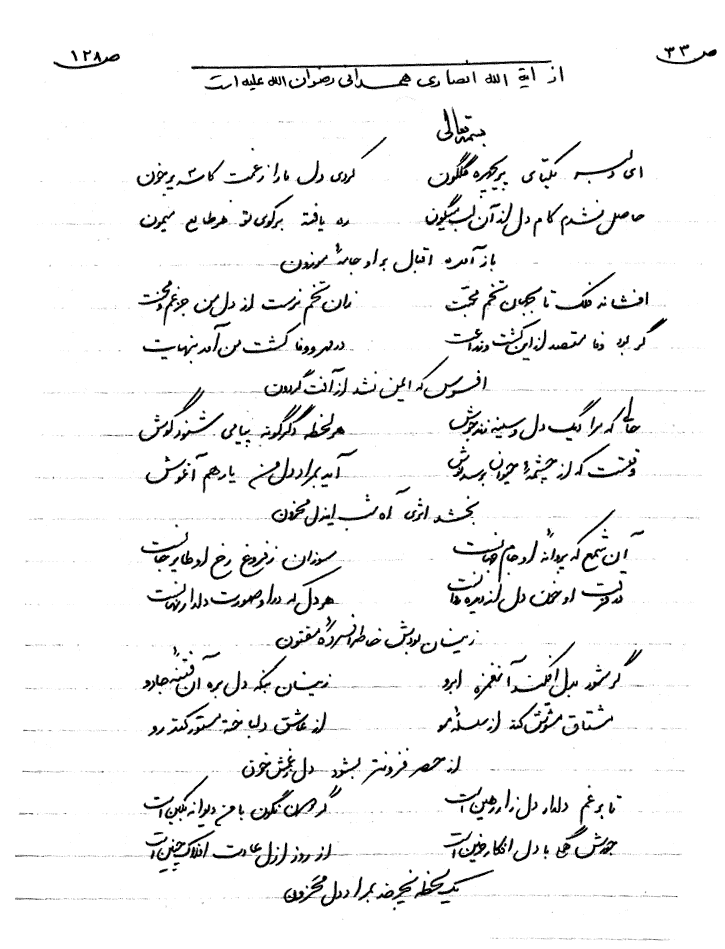 ص ۳۳ ص ۱۲۸
از آیة الله انصاری همدانی رضوان الله علیه است
بسمه تعالی
ای دلبر یکتای پریچهره گلگون کردی دل ما را ز غمت کاسه پر خون
حاصل نشدم کام دل از آن لب میگون ره یافته بر کوی تو هر طایع میمون
باز آمده اقبال بر او جامهٔ موزون
افشانه فلک تا بجهان تخم محبت زان تخم نرست از دل من جز غم و محنت
گر بود وفا مقصد از این کشت و زراعت در مهر و وفا کشت من آمد بنهایت
افسوس که ایمن نشد از آفت گردون
حالی که مرا دیگ دل و سینه زند جوش هر لحظه دگرگونه پیامی شنود گوش
وقتست که از چشمهٔ حیوان بوسد نوش آید بمراد دل من یار هم آغوش
بخشد اثری آه شب این دل محزون
آن شمع که پروانهٔ او جام جهانست سوزان ز فروغ رخ او طایر جانست
در فرقت او خون دل از دیده روانست هر دل که در او صورت دلدار نهانست
زینسان بودش خاطر افسردهٔ مفتون
گر شور بدل افکند آن غمزه ابرو زینسان که دل برد آن فتنهٔ جادو
مشتاق مشوش کند از سلسلهٔ مو از عاشق دلباخته مستور کند رو
از حصر فزونتر بشود دل ز غمش خون
تا بر غم دلدار دل زار رهین است گردون نگون با من دیوانه بکین است
جورش همی با دل افکار حزین است از روز ازل عادت افلاک چنین است
یک لحظه نچرخد بمراد دل محزون